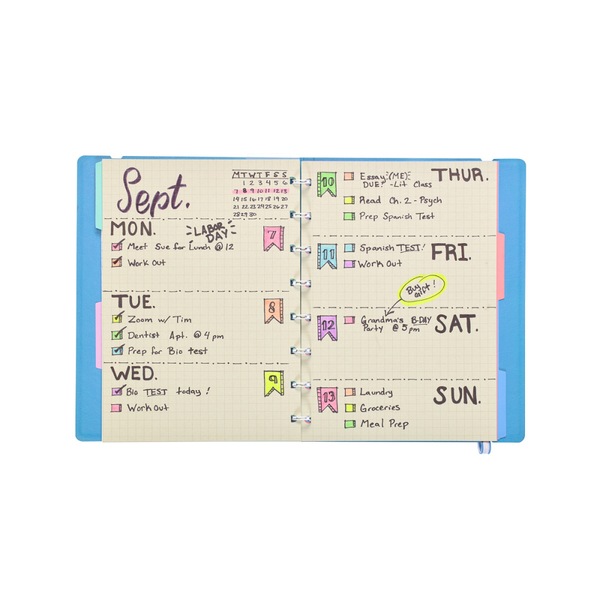 Sept.
M T W T F S S
1 2 3 4 5 6
7 8 9 10 11 12 13
14 15 16 17 18 19 20
21 22 23 24 25 26 27
28 29 30
MON.
LABOR DAY
7
Meet Sue for Lunch @ 12
Work Out
TUE.
8
Zoom w/ Tim
Dentist Apt. @ 4 pm
Prep for Bio test
WED.
9
Bio TEST today!
Work Out
THUR.
10
Essay (ME)
DUE! - Lit Class
Read Ch. 2 - Psych
Prep Spanish Test
FRI.
11
Spanish TEST!
Work Out
Buy gift!
SAT.
12
Grandma's B-DAY
Party @ 5 pm
SUN.
13
Laundry
Groceries
Meal Prep